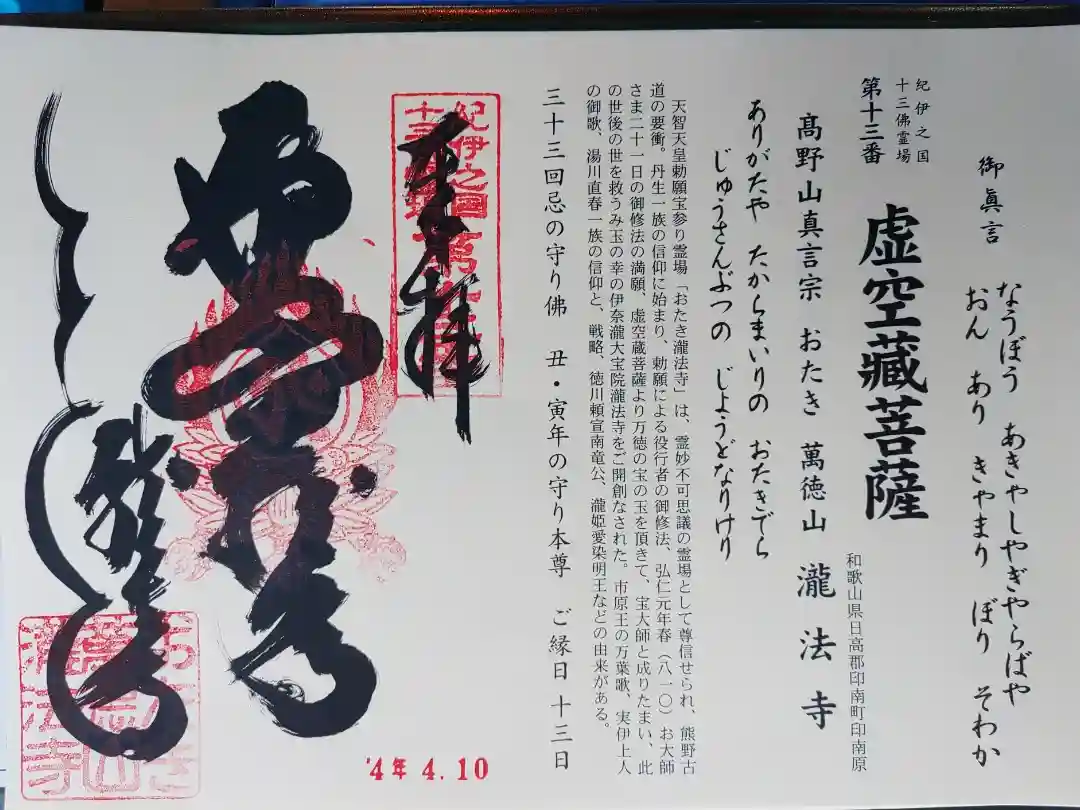 御眞言
なうぼう あきゃしゃぎゃらばや
おん あり きゃまり ぼり そわか
紀伊之国
十三佛霊場
第十三番
虚空藏菩薩
和歌山県日高郡印南町印南原
高野山真言宗 おたき 萬徳山 瀧法寺
ありがたや たからまいりの おたきでら
じゅうさんぶつの じょうどなりけり
天智天皇勅願宝参り霊場「おたき瀧法寺」は、霊妙不可思議の霊場として尊信せられ、熊野古
道の要衝。丹生一族の信仰に始まり、勅願による役行者の御修法、弘仁元年春（八一〇）お大師
さま二十一日の御修法の満願、虚空蔵菩薩より万徳の宝の玉を頂きて、宝大師と成りたまい、此
の世後の世を救うみ玉の幸の伊奈瀧大宝院瀧法寺をご開創なされた。市原王の万葉歌、実伊上人
の御歌、湯川直春一族の信仰と、戦略、徳川頼宣南竜公、瀧姫愛染明王などの由来がある。
三十三回忌の守り佛 丑・寅年の守り本尊 ご縁日 十三日
奉拝
紀伊之国
瀧法寺
'4年 4.10